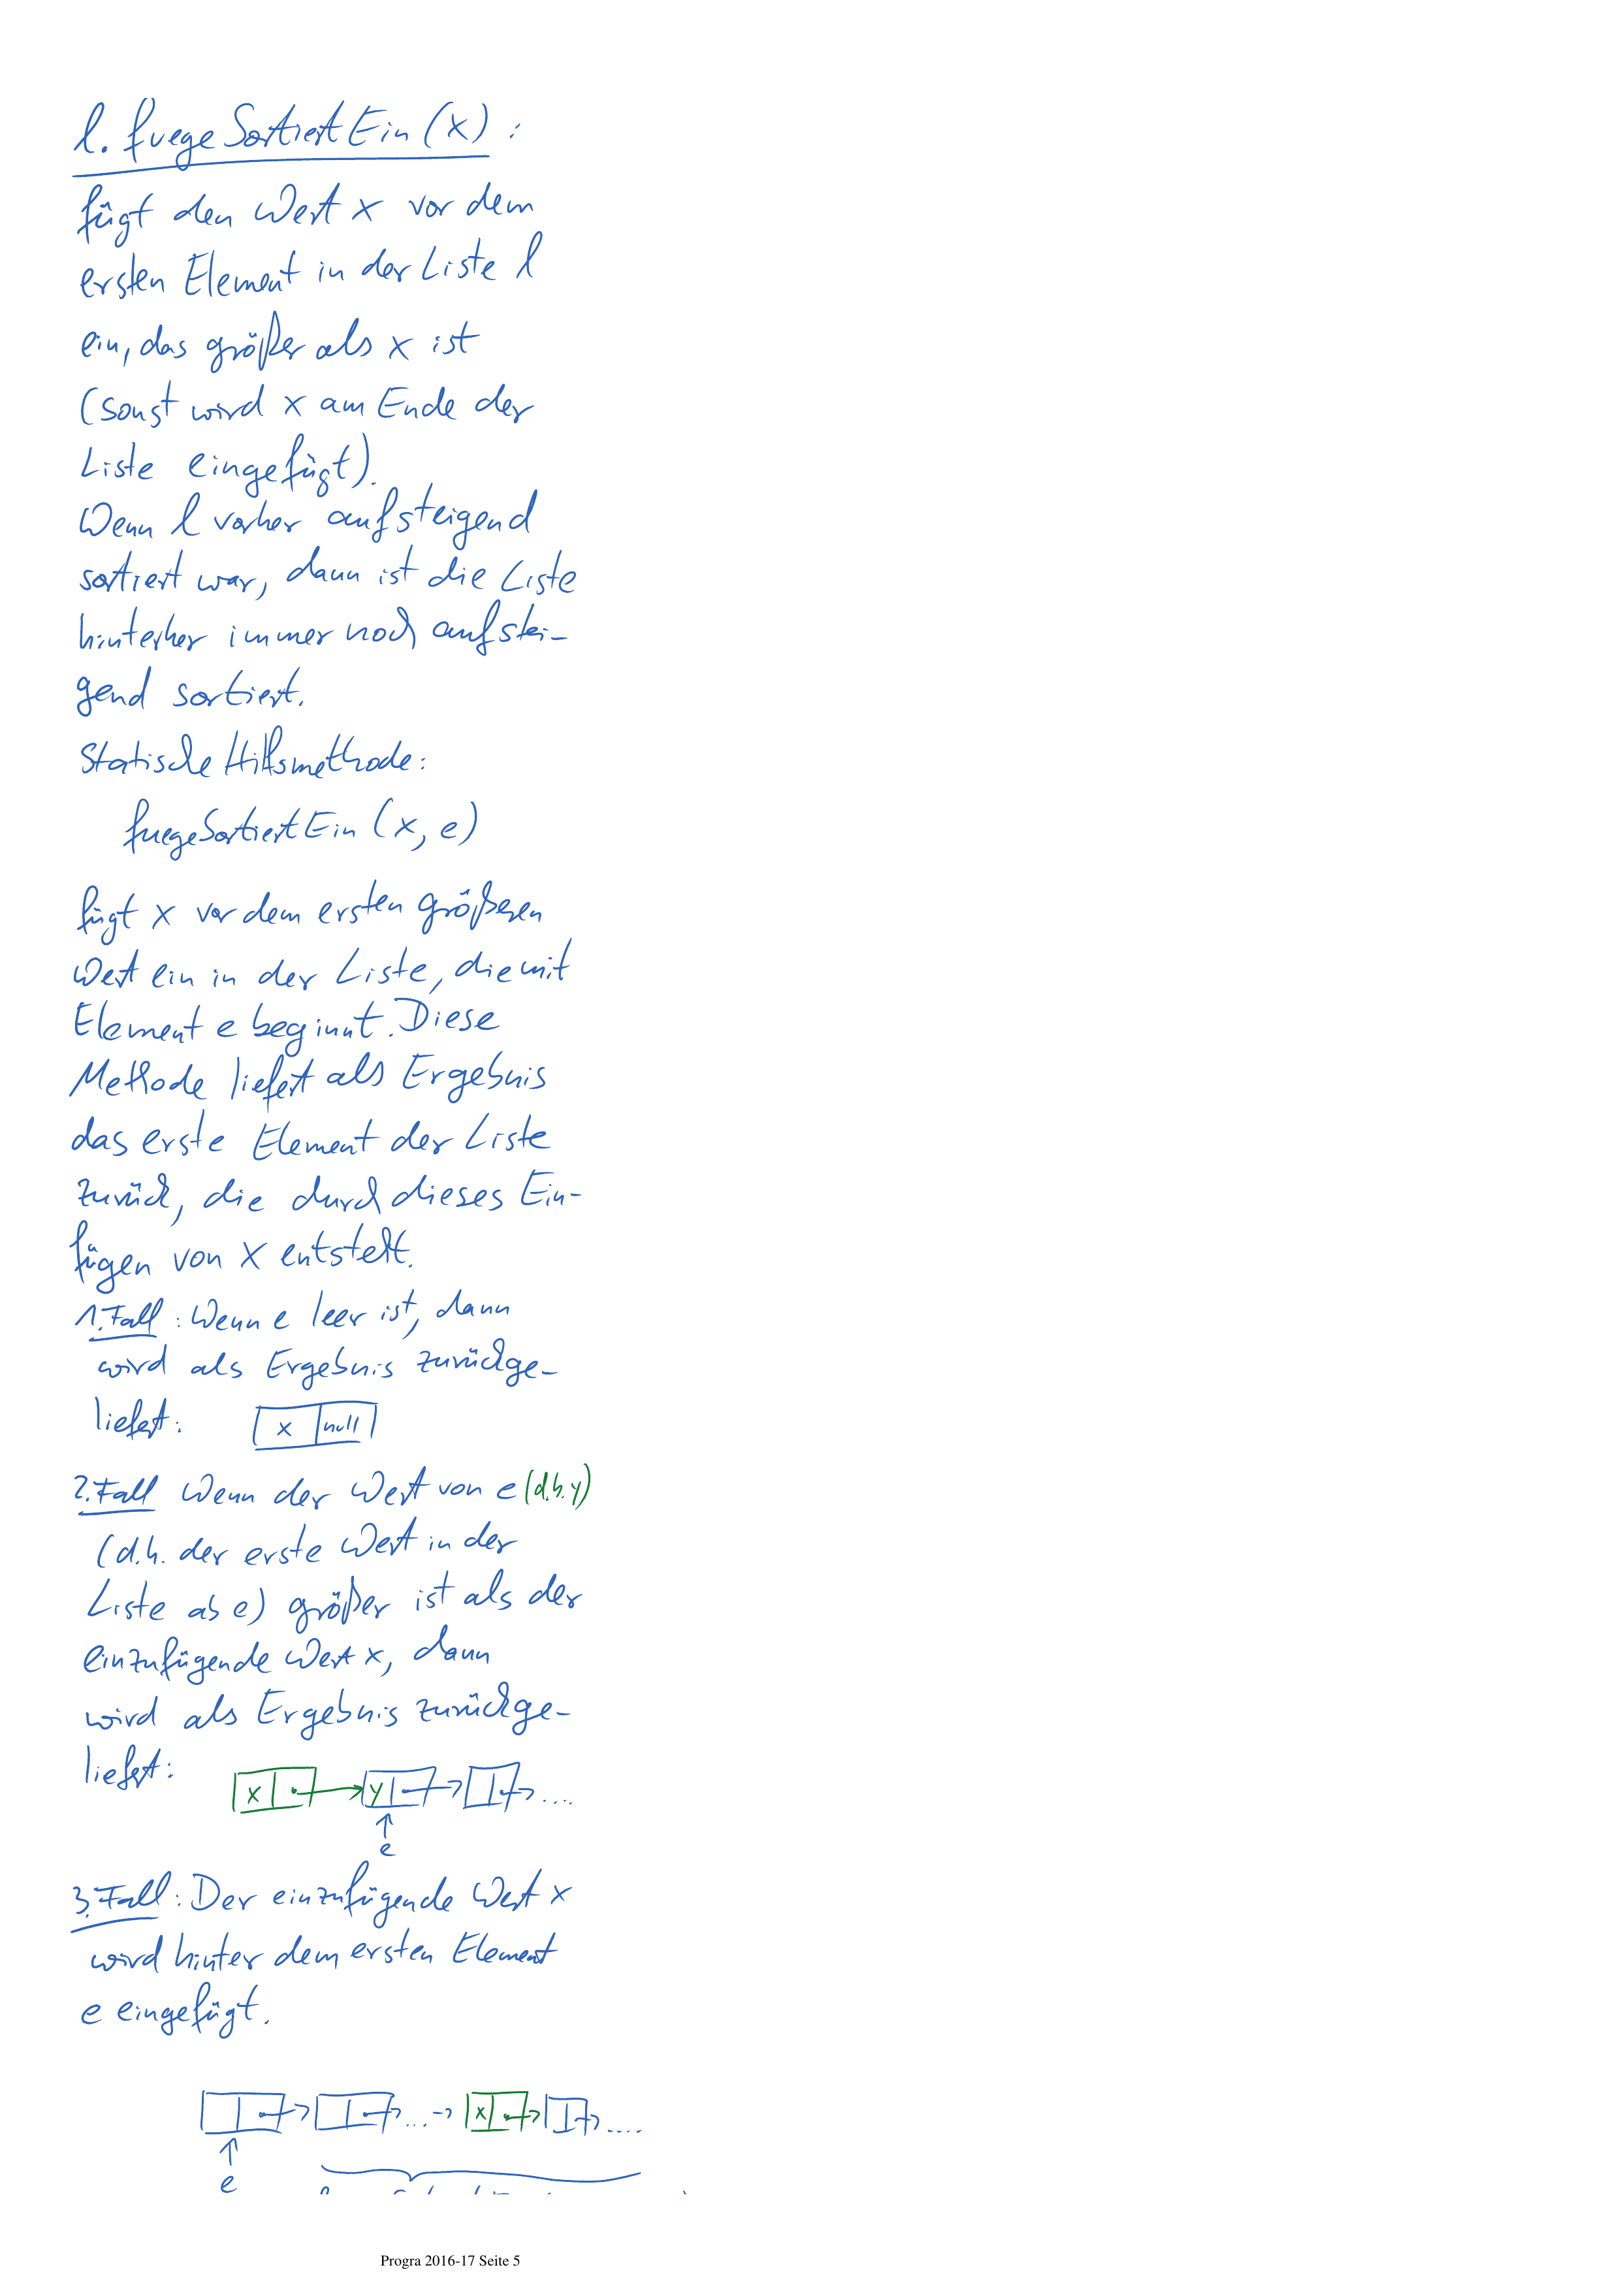 l. fuegeSortiertEin(x) :
fügt den Wert x vor dem
ersten Element in der Liste l
ein, das größer als x ist
(sonst wird x am Ende der
Liste eingefügt).
Wenn l vorher aufsteigend
sortiert war, dann ist die Liste
hinterher immer noch aufstei-
gend sortiert.
Statische Hilfsmethode:
fuegeSortiertEin (x, e)
fügt x vor dem ersten größeren
Wert ein in der Liste, die mit
Element e beginnt. Diese
Methode liefert als Ergebnis
das erste Element der Liste
zurück, die durch dieses Ein-
fügen von x entsteht.
1. Fall : Wenn e leer ist, dann
wird als Ergebnis zurückge-
liefert: x null
2. Fall Wenn der Wert von e (d.h. y)
(d.h. der erste Wert in der
Liste ab e) größer ist als der
einzufügende Wert x, dann
wird als Ergebnis zurückge-
liefert:
x y ....
e
3. Fall : Der einzufügende Wert x
wird hinter dem ersten Element
e eingefügt.
... x ....
e
Progra 2016-17 Seite 5